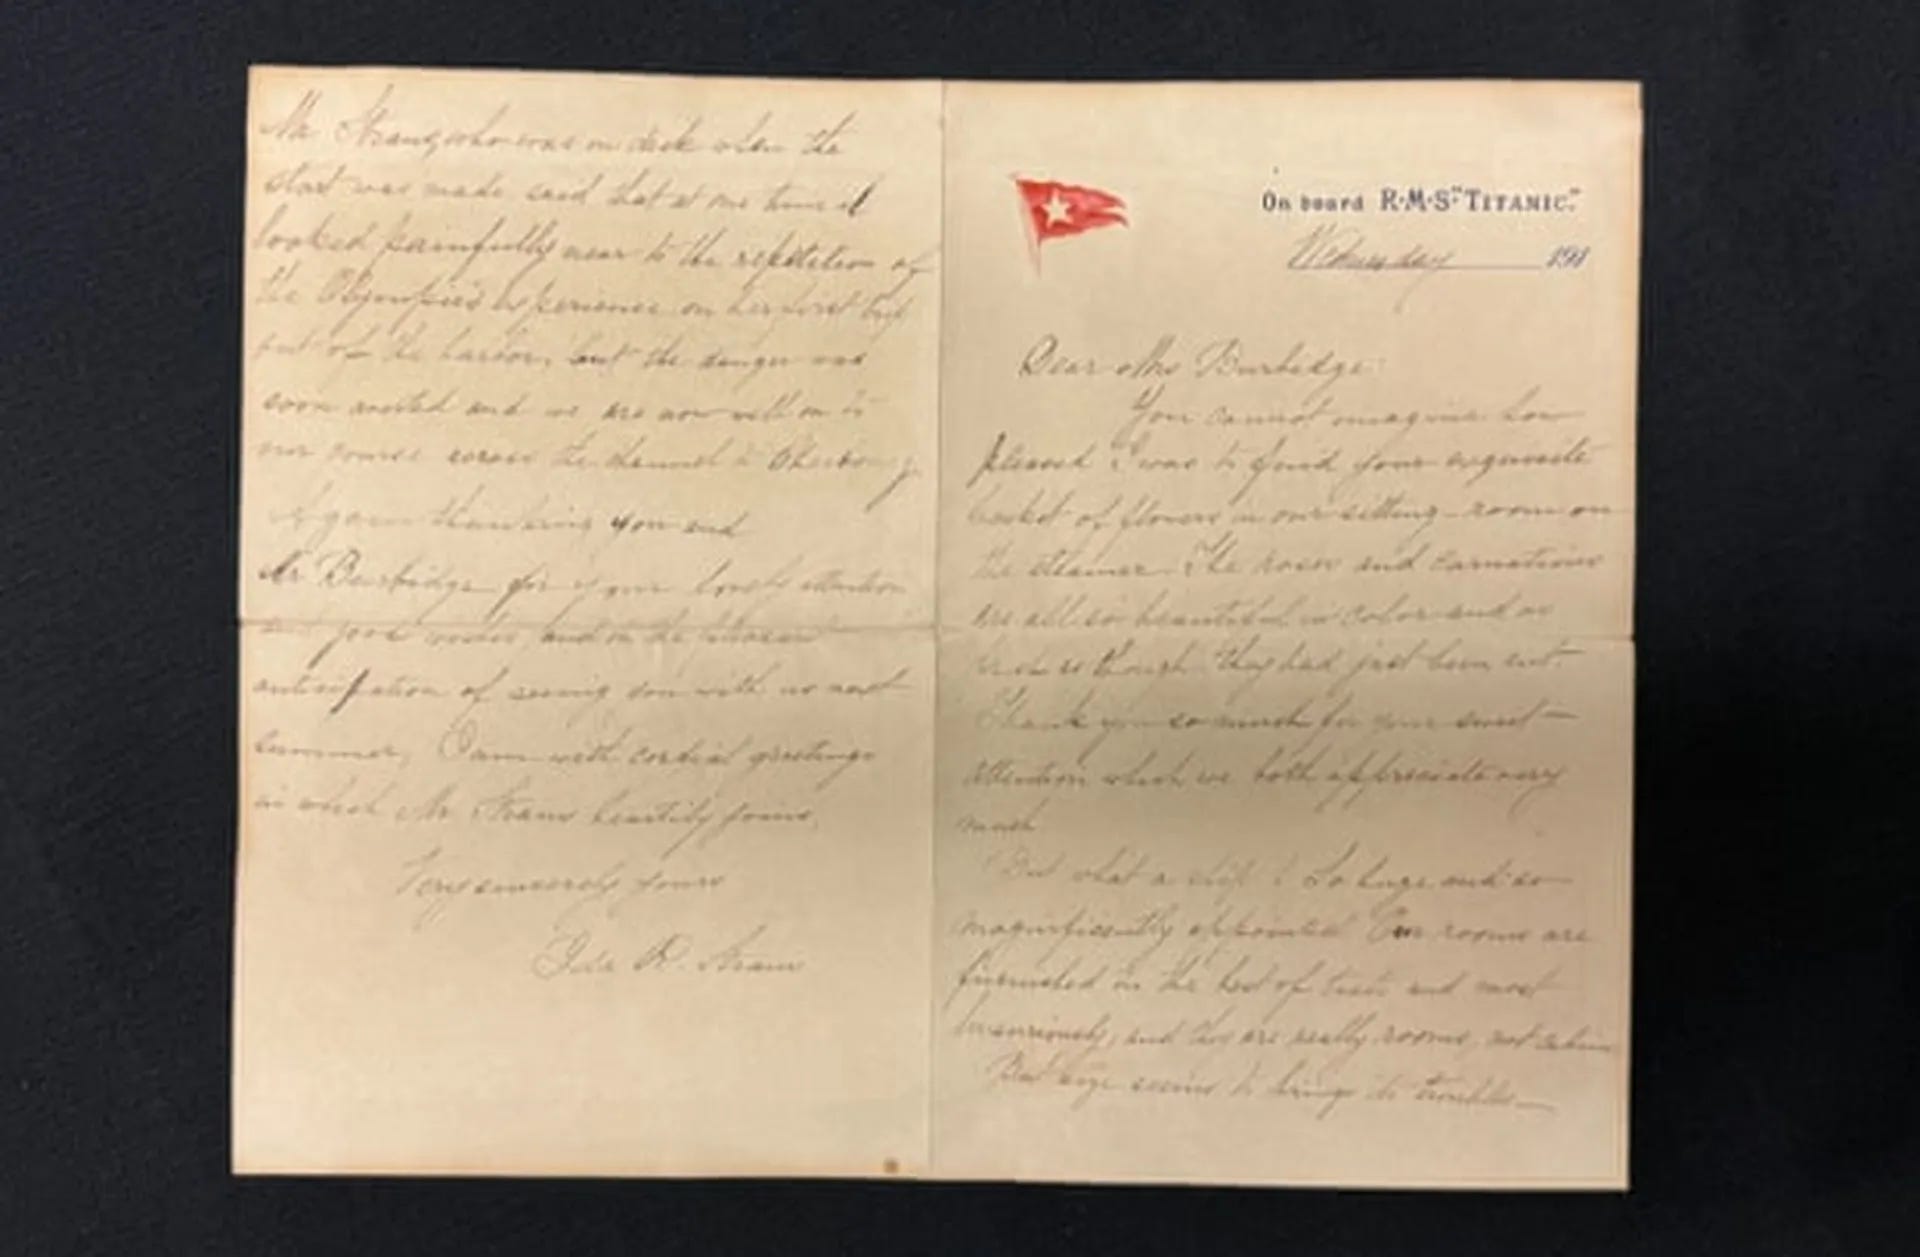 On board R·M·S· "TITANIC."
Wednesday 191
Dear Mrs Burbidge:
You cannot imagine how
pleased I was to find your exquisite
basket of flowers in our sitting-room on
the steamer. The roses and carnations
are all so beautiful in color and as
fresh as though they had just been cut.
Thank you so much for your sweet
attention which we both appreciate very
much
But what a ship! So huge and so
magnificently appointed Our rooms are
furnished in the best of taste and most
luxuriously, and they are really rooms, not cabins
But size seems to bring its troubles—
Mr Straus, who was on deck when the
start was made said that at one time it
looked painfully near to the repetition of
the Olympic's experience on her first trip
out of the harbor, but the danger was
soon averted and we are now well on to
our course across the channel to Cherbourg
Again thanking you and
Mr Burbidge for your lovely attention
and good wishes, and in the pleasant
anticipation of seeing you with us next
summer, I am with cordial greetings
in which Mr Straus heartily joins,
Very sincerely yours
Ida R. Straus